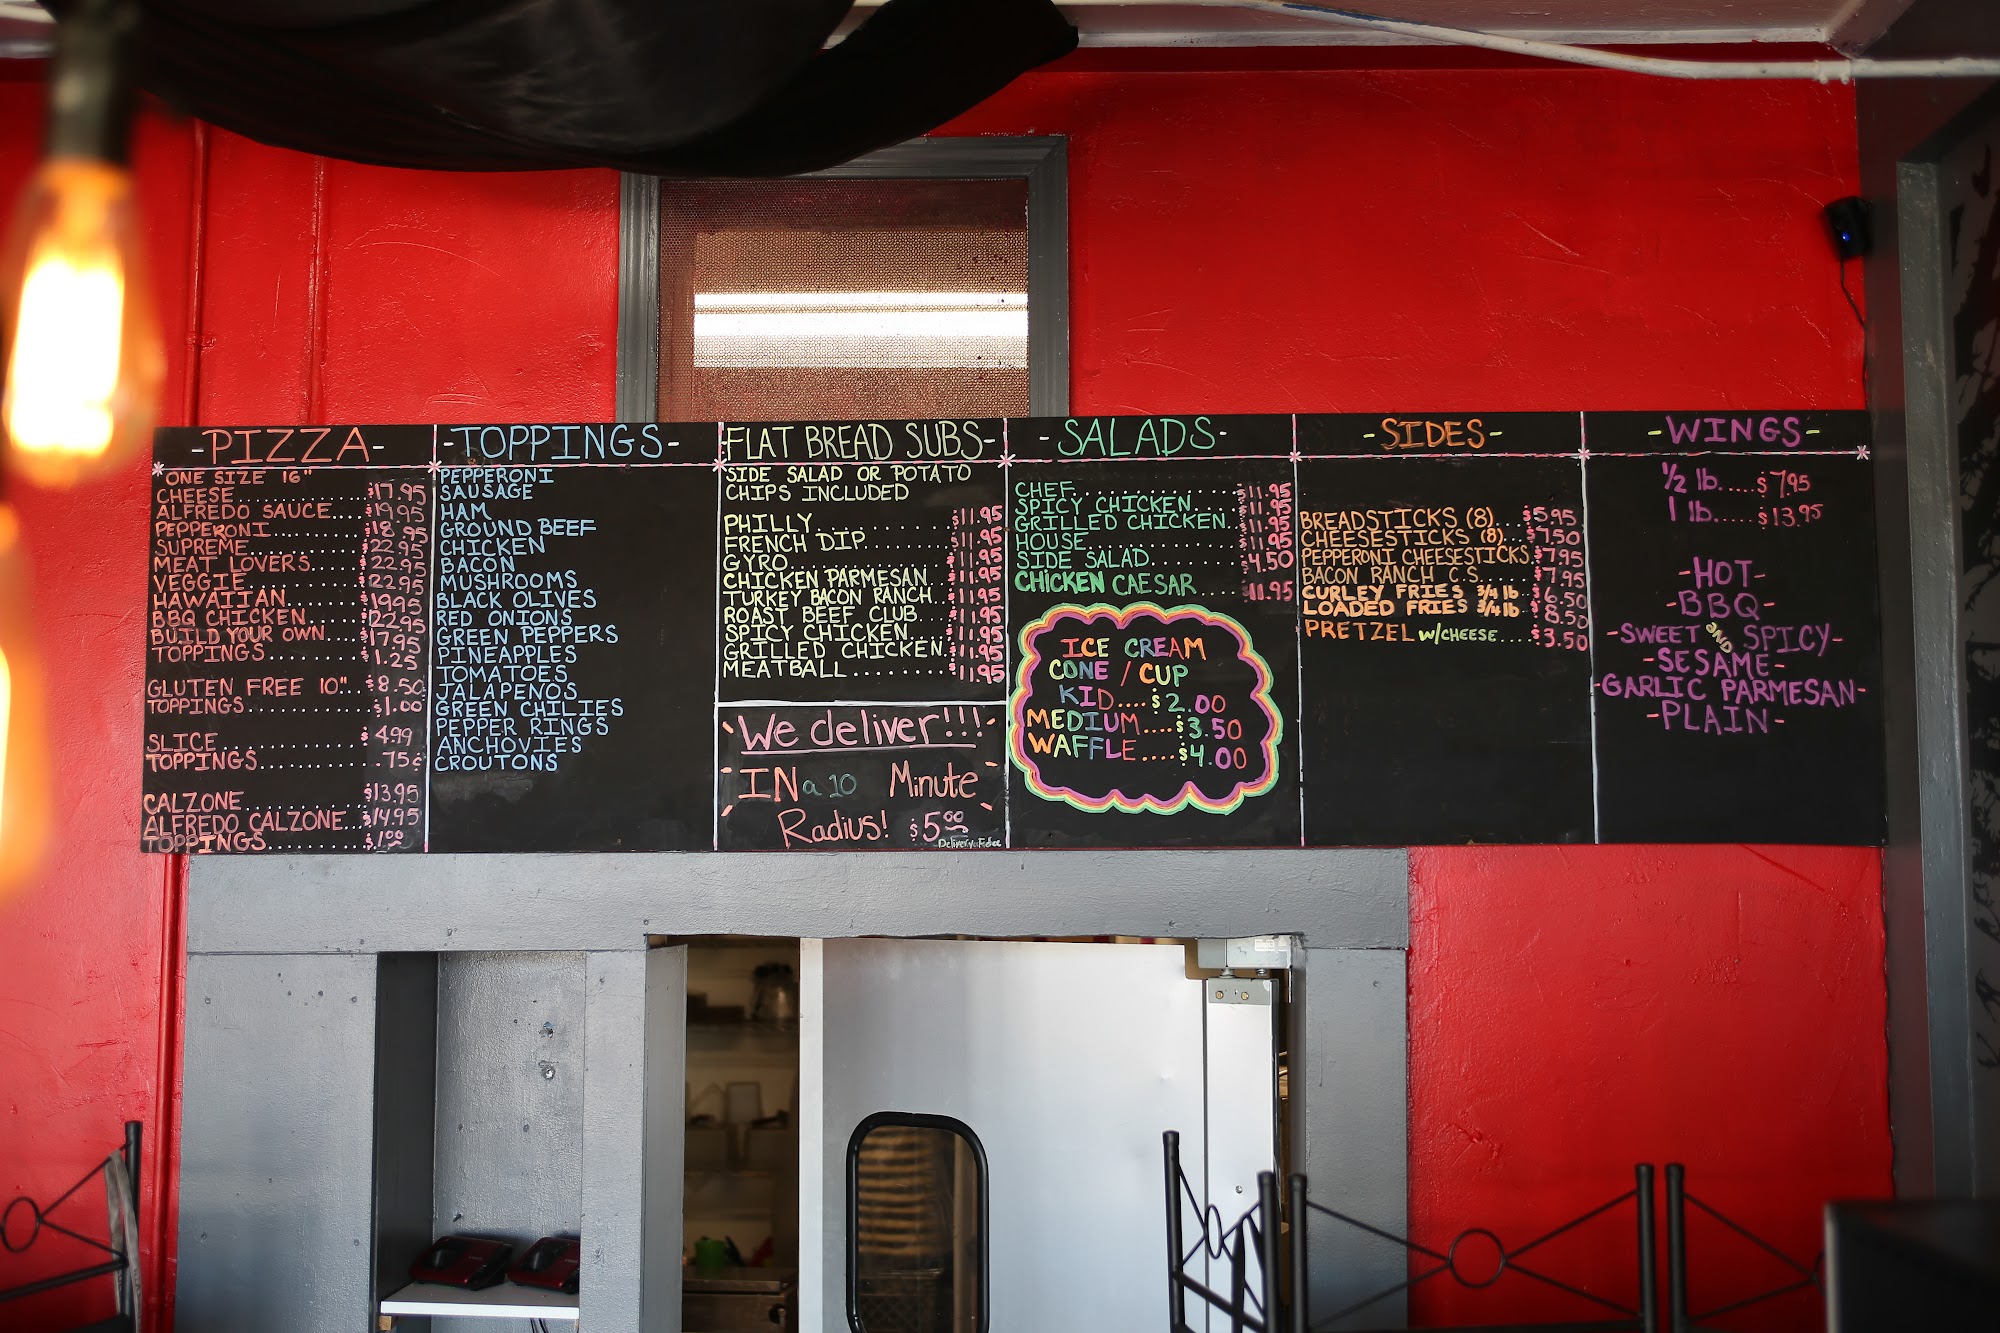 -PIZZA-
*ONE SIZE 16"
CHEESE............$17.95
ALFREDO SAUCE....$19.95
PEPPERONI.........$18.95
SUPREME...........$22.95
MEAT LOVERS......$22.95
VEGGIE............$22.95
HAWAIIAN.........$19.95
BBQ CHICKEN......$22.95
BUILD YOUR OWN....$17.95
TOPPINGS..........$1.25
GLUTEN FREE 10"..$8.50
TOPPINGS..........$1.00
SLICE..............$4.99
TOPPINGS...........75¢
CALZONE...........$13.95
ALFREDO CALZONE...$14.95
TOPPINGS..........$1.00
-TOPPINGS-
PEPPERONI
SAUSAGE
HAM
GROUND BEEF
CHICKEN
BACON
MUSHROOMS
BLACK OLIVES
RED ONIONS
GREEN PEPPERS
PINEAPPLES
TOMATOES
JALAPENOS
GREEN CHILIES
PEPPER RINGS
ANCHOVIES
CROUTONS
-FLAT BREAD SUBS-
SIDE SALAD OR POTATO
CHIPS INCLUDED
PHILLY............$11.95
FRENCH DIP........$11.95
GYRO..............$11.95
CHICKEN PARMESAN..$11.95
TURKEY BACON RANCH..$11.95
ROAST BEEF CLUB...$11.95
SPICY CHICKEN.....$11.95
GRILLED CHICKEN...$11.95
MEATBALL..........$11.95
We deliver!!!
IN a 10 Minute
Radius! $5.00
Delivery Fee
-SALADS-
CHEF..............$11.95
SPICY CHICKEN.....$11.95
GRILLED CHICKEN...$11.95
HOUSE.............$11.95
SIDE SALAD........$4.50
CHICKEN CAESAR....$11.95
ICE CREAM
CONE / CUP
KID....$2.00
MEDIUM....$3.50
WAFFLE....$4.00
-SIDES-
BREADSTICKS (8)...$5.95
CHEESESTICKS (8)..$7.50
PEPPERONI CHEESESTICKS.$7.95
BACON RANCH C.S.....$7.95
CURLEY FRIES 3/4 lb..$6.50
LOADED FRIES 3/4 lb..$8.50
PRETZEL W/CHEESE....$3.50
-WINGS-
1/2 lb.....$7.95
1 lb.....$13.95
-HOT-
-BBQ-
-SWEET AND SPICY-
-SESAME-
-GARLIC PARMESAN-
-PLAIN-